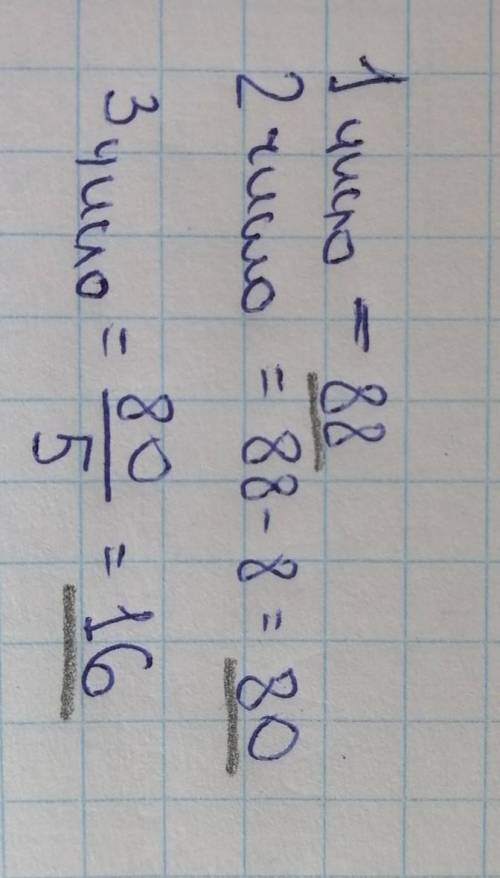 1 число – 88
2 число = 88 - 8 = 80
3 число = 80/5 = 16